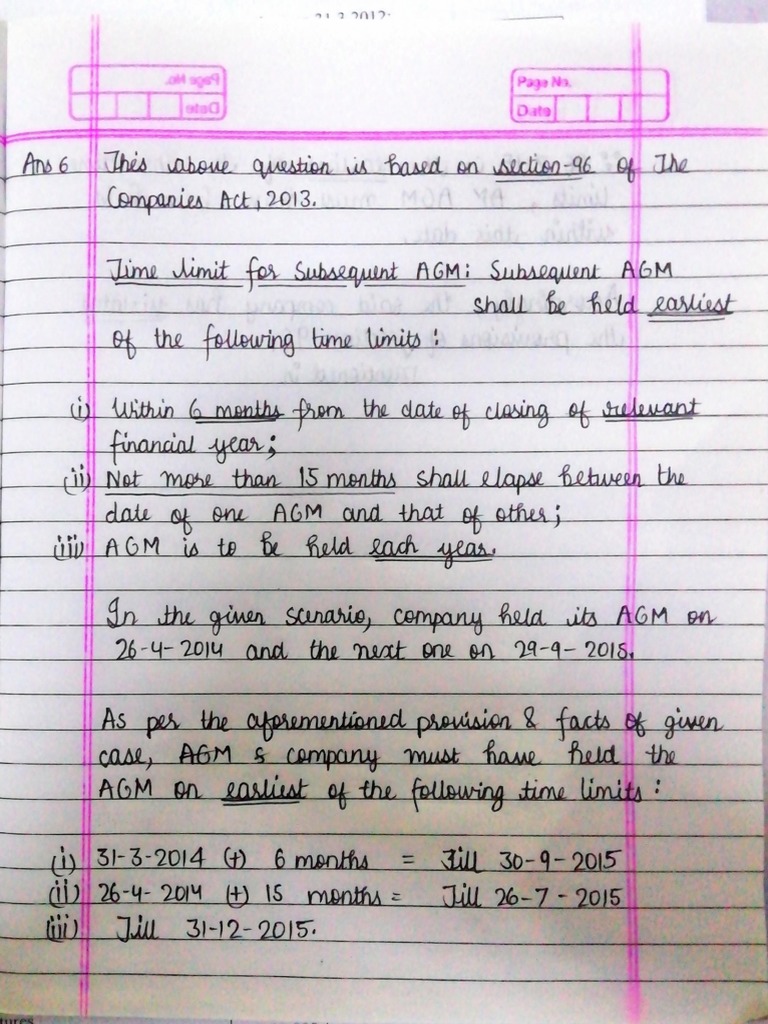 21.3.2012:
Page No.
Date
Page No.
Date
Ans 6 This above question is based on section-96 of The
Companies Act, 2013.
Time limit for Subsequent AGM: Subsequent AGM
shall be held earliest
of the following time limits :
(i) Within 6 months from the date of closing of relevant
financial year;
(ii) Not more than 15 months shall elapse between the
date of one AGM and that of other;
(iii) AGM is to be held each year.
In the given scenario, company held its AGM on
26-4-2014 and the next one on 29-9-2015.
As per the aforementioned provision & facts of given
case, AGM & company must have held the
AGM on earliest of the following time limits :
(i) 31-3-2014 (+) 6 months = Till 30-9-2015
(ii) 26-4-2014 (+) 15 months = Till 26-7-2015
(iii) Till 31-12-2015.